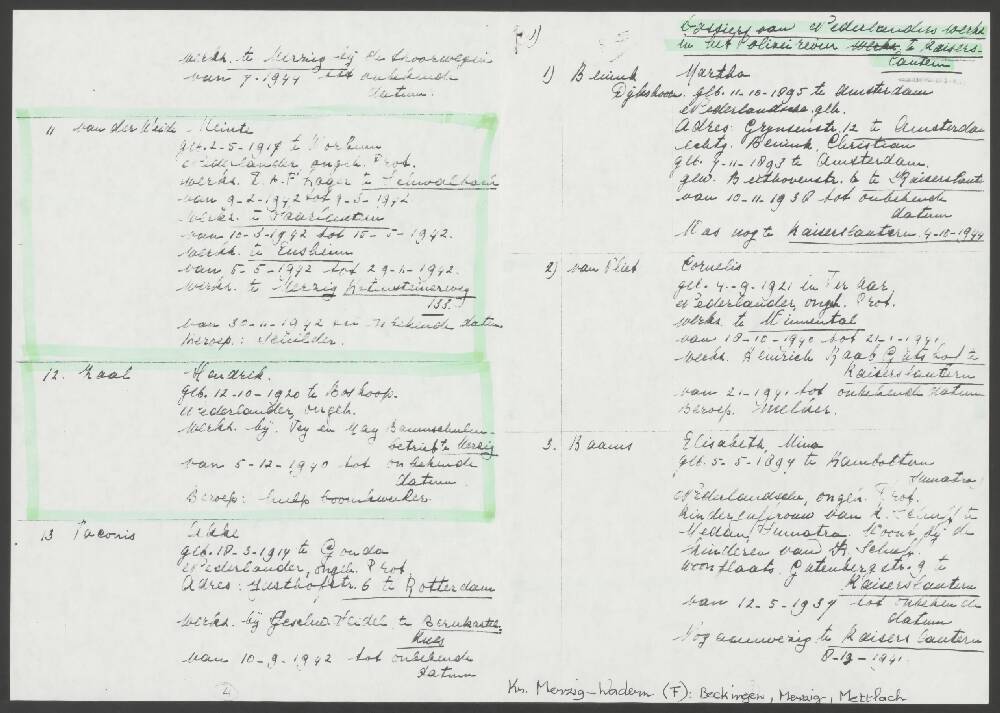 werkz. te Merzig bij de Spoorwegen
van 7-1944 tot onbekende
datum.
11 van der Weide - Meinte
geb. 2-5-1917 te Workum
Nederlander, ongeh. Prot.
werkz. te Schwalbach
van 9-2-1942 tot 9-3-1942
werkz. te Saarlautern
van 10-3-1942 tot 15-5-1942.
werkz. te Ensheim
van 5-5-1942 tot 29-1-1942.
werkz. te Merzig
133.
van 30-11-1942 tot onbekende datum
beroep: Schilder.
12. Zaal Hendrik.
geb. 12-10-1920 te Boskoop.
Nederlander, ongeh.
werkz. bij Baumschulen-
betrieb te Merzig
van 5-12-1940 tot onbekende
datum
Beroep: hulp boomkweker.
13 Taconis
geb. 18-3-1914 te Gouda
Nederlander, ongeh. Prot.
Adres: 6 te Rotterdam
werkz. bij te Bernkastel-
Kues
van 10-9-1942 tot onbekende
datum
4
Dossiers van Nederlanders werkz.
in het Polizeirevier te Kaisers-
lautern
1) Benink Martha
geb. 11-10-1895 te Amsterdam
Nederlandsche, geh.
Adres: 12 te Amsterdam
echtg. Benink, Christian
geb. 9-11-1893 te Amsterdam.
gew. Beethovenstr. 6 te Kaiserslaut.
van 10-11-1938 tot onbekende
datum
Was nog te Kaiserslautern 4-10-1944
2) van Vliet Cornelis
geb. 4-9-1921 in Ter Aar
Nederlander, ongeh. Prot.
werkz. te
van 18-10-1940 tot 21-1-1941.
werkz. Heinrich Raab te
Kaiserslautern
van 21-1941 tot onbekende datum
Beroep: Melker.
3. Baams Elisabeth, Mina
geb. 5-5-1894 te
Sumatra
Nederlandsche, ongeh. Prot.
kinderjuffrouw van te
Medan, Sumatra. Woont bij de
kinderen van
woonplaats, Gutenbergstr. 9 te
Kaiserslautern
van 12-5-1937 tot onbekende
datum
Nog aanwezig te Kaiserslautern
8-12-1941.
Kr. Merzig-Wadern (F): Beckingen, Merzig, Mettlach